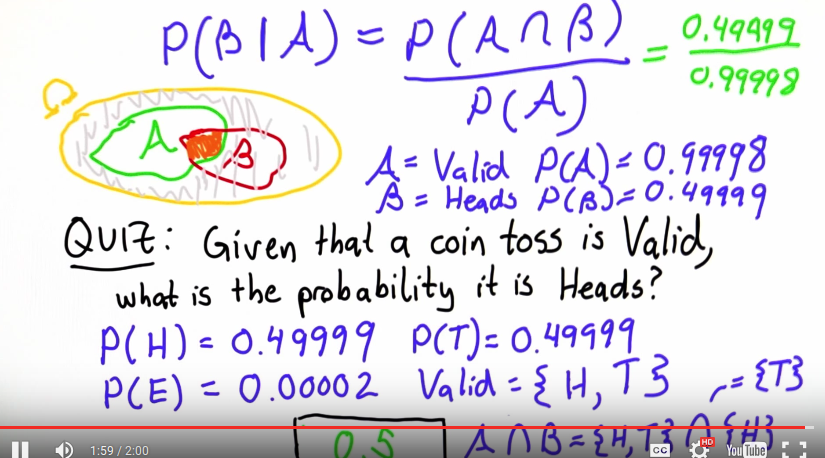 P(B|A) = P(A∩B) / P(A) = 0.49999 / 0.99998
Ω
A
B
A = Valid P(A) = 0.99998
B = Heads P(B) = 0.49999
QUIZ: Given that a coin toss is Valid,
what is the probability it is Heads?
P(H) = 0.49999 P(T) = 0.49999
P(E) = 0.00002 Valid = {H, T}
= {T}
0.5
A∩B = {H, T} ∩ {H}
1:59 / 2:00
CC
HD
YouTube